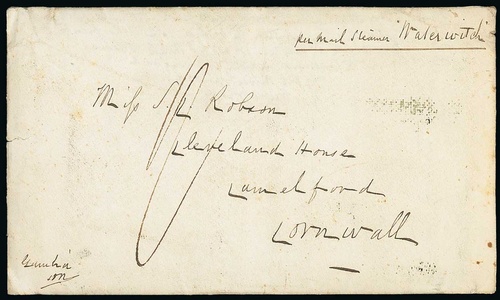 per Mail Steamer "Waterwitch"
Miss Robson
Cleveland House
Camelford
Cornwall